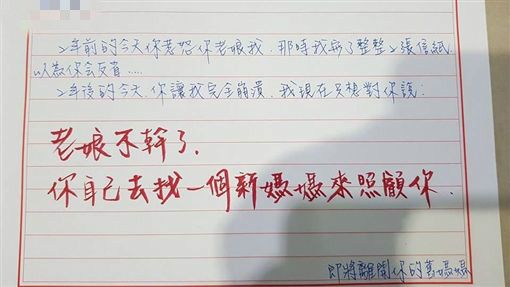 2年前的今天你惹怒你老娘我,那時我寫了整整2張信紙,
以為你会反省....
2年後的今天,你讓我完全崩潰,我現在只想對你說:
老娘不幹了,
你自己去找一個新媽媽來照顧你.
即將離開你的舊媽媽